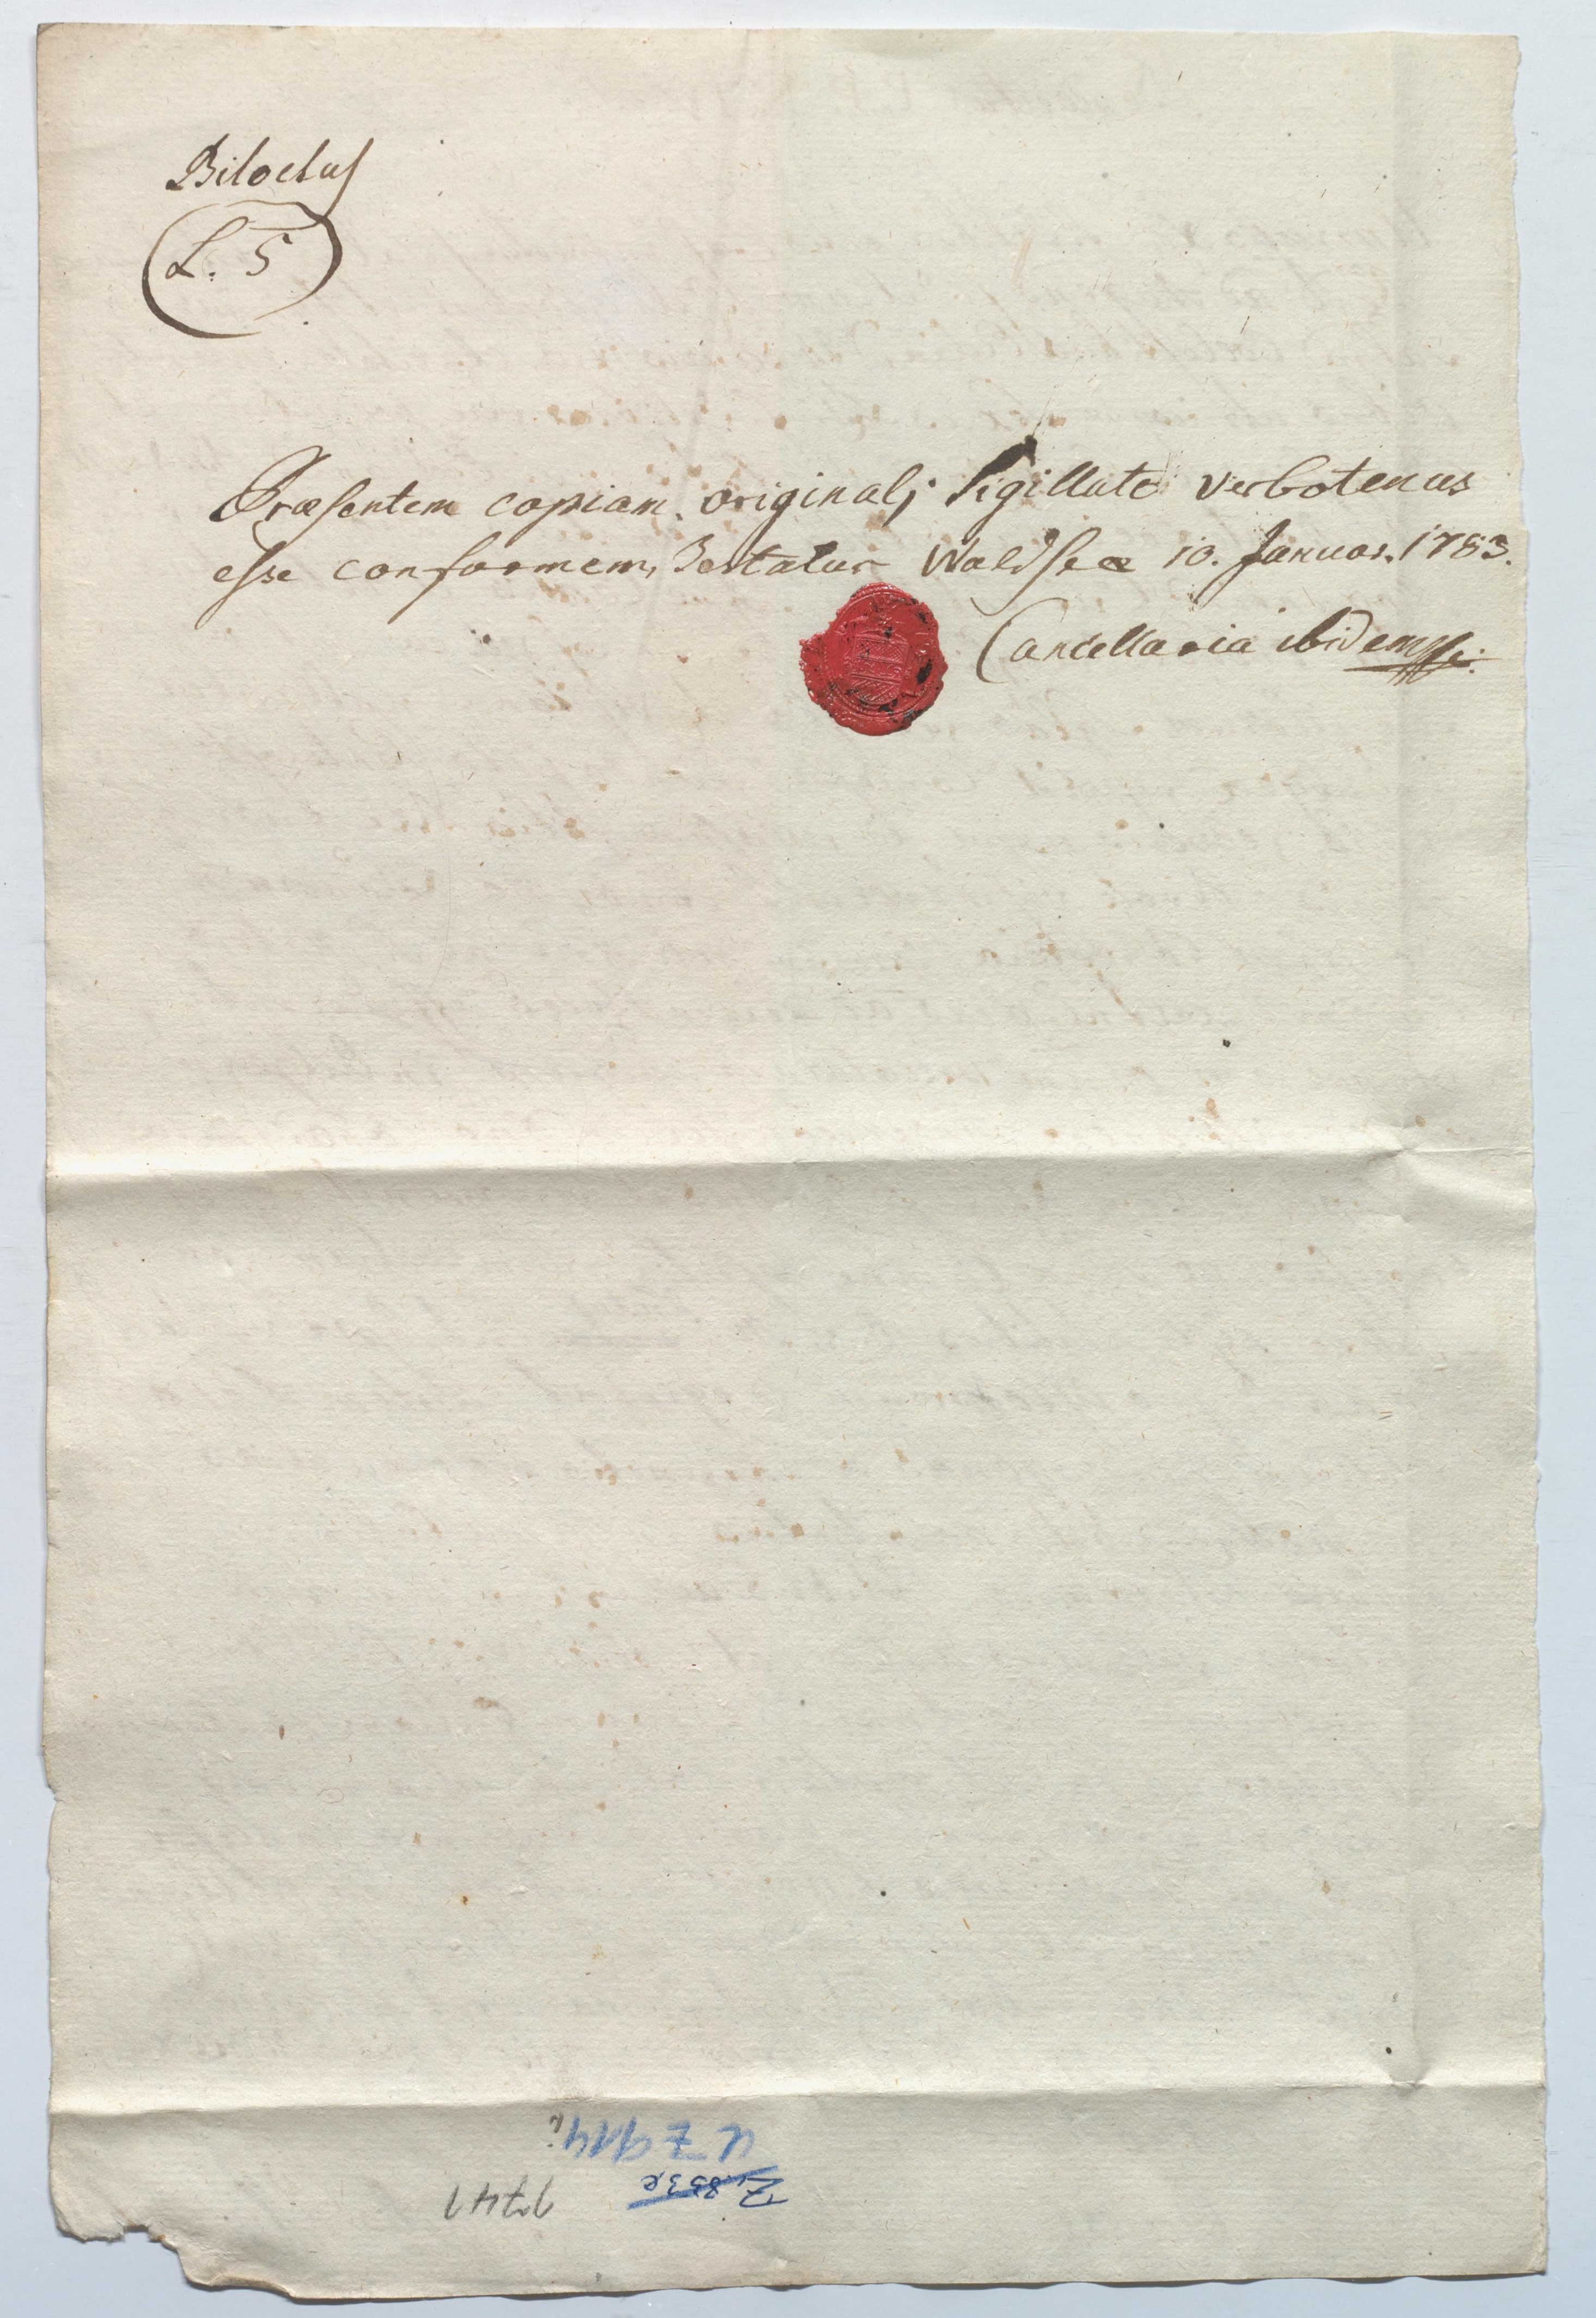 Bilochus
L. 5
Præsentem copiam originali Sigillato verbotenus
esse conformem, Testatur Waldsee 10. Januar. 1783.
Cancellaria ibidem
U Z 914
Z. 833e
1741